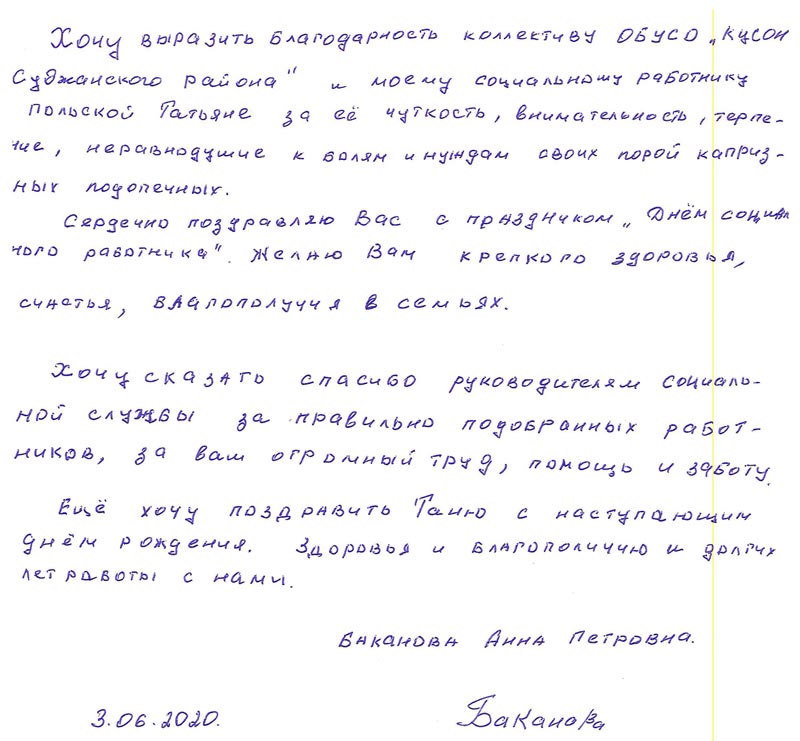 Хочу выразить благодарность коллективу ОБУСО „КЦСОН
Суджанского района" и моему социальному работнику
Польской Татьяне за её чуткость, внимательность, терпе-
ние, неравнодушие к болям и нуждам своих порой каприз-
ных подопечных.
Сердечно поздравляю Вас с праздником „Днём социаль
ного работника". Желаю Вам крепкого здоровья,
счастья, благополучия в семьях.
Хочу сказать спасибо руководителям социаль-
ной службы за правильно подобранных работ-
ников, за вам огромный труд, помощь и заботу.
Ещё хочу поздравить Таню с наступающим
днём рождения. Здоровья и благополиччию и долгих
лет работы с нами.
Баканова Анна Петровна.
3.06.2020. Баканова